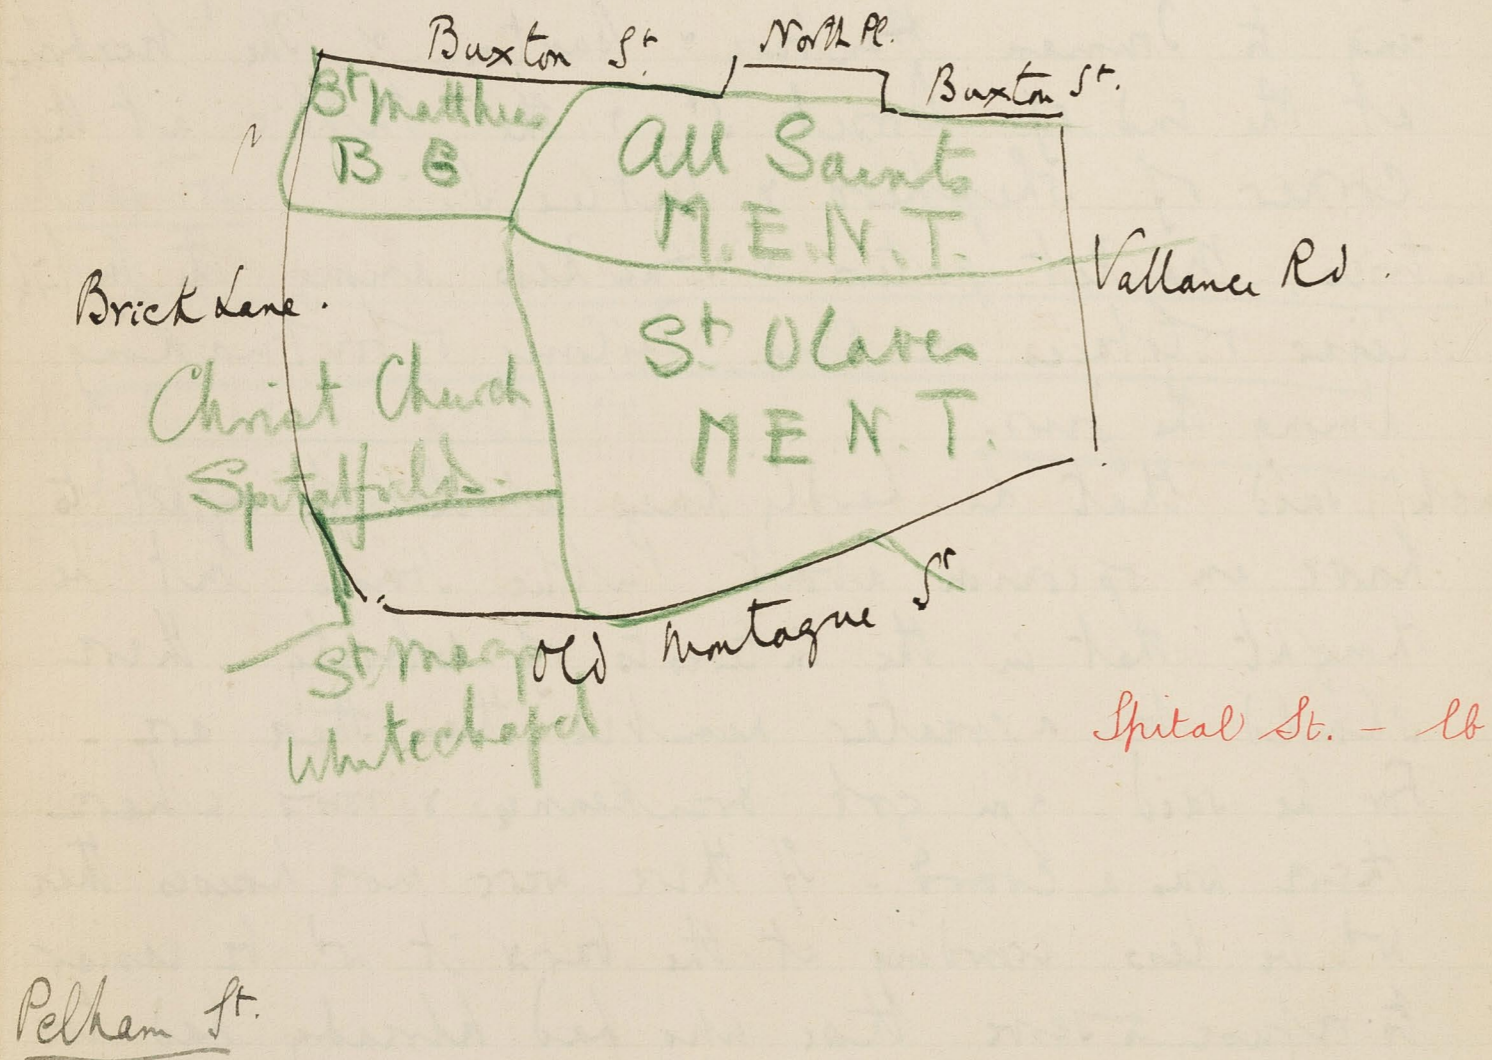 Buxton St.
North Pl.
Buxton St.
St Matthew
B G
All Saints
M.E.N.T.
Vallance Rd.
Brick Lane.
St Olaves
M E N. T.
Christ Church
Spitalfields.
Old Montague St
St Mary
Whitechapel
Spital St. - lb
Pelham St.